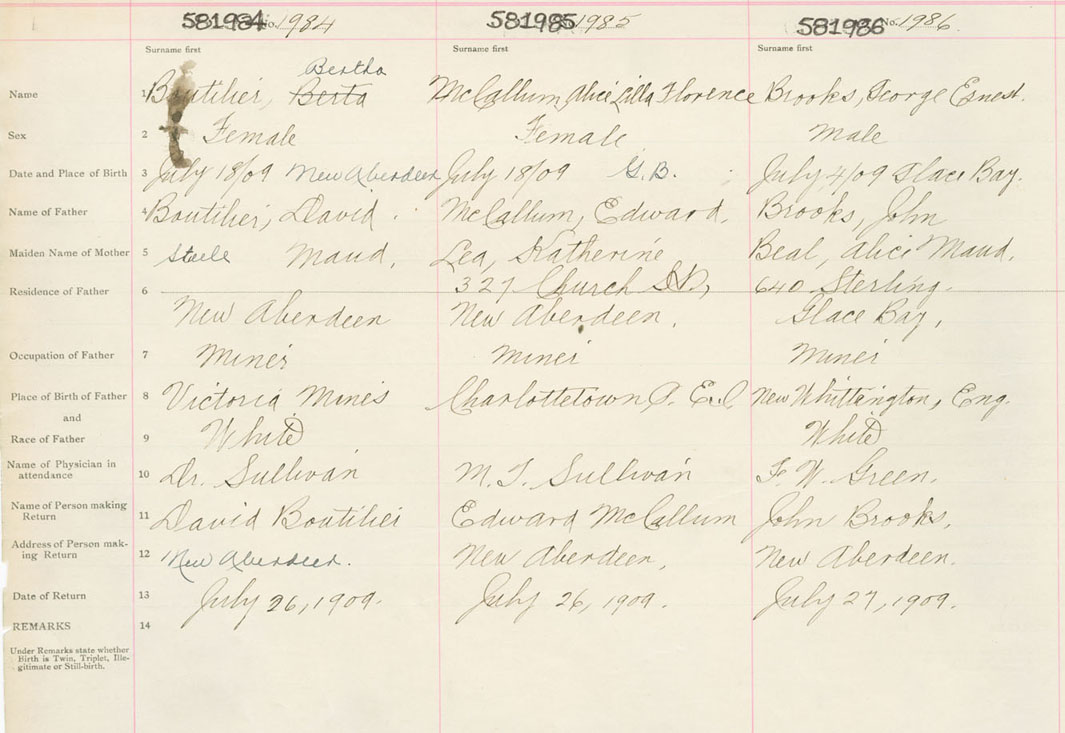 581984 No. 1984 581985 1985 581986 No. 1986
Surname first Surname first Surname first
Bertha
Name 1 Boutilier, Berta McCallum, Alice Lilla Florence Brooks, George Ernest.
Sex 2 Female Female Male
Date and Place of Birth 3 July 18/09 New Aberdeen July 18/09 G.B. July 4/09 Glace Bay.
Name of Father 4 Boutilier, David. McCallum, Edward. Brooks, John
Maiden Name of Mother 5 Steele Maud. Lea, Katherine Beal, Alice Maud.
Residence of Father 6 327 Church St., 640 Sterling.
New Aberdeen New Aberdeen. Glace Bay,
Occupation of Father 7 Miner Miner Miner
Place of Birth of Father 8 Victoria Mines Charlottetown P.E.I. New Whittington, Eng.
and
Race of Father 9 White White
Name of Physician in
attendance 10 Dr. Sullivan M. T. Sullivan F. W. Green.
Name of Person making
Return 11 David Boutilier Edward McCallum John Brooks.
Address of Person mak-
ing Return 12 New Aberdeen. New Aberdeen, New Aberdeen.
Date of Return 13 July 26, 1909. July 26, 1909. July 27, 1909.
REMARKS 14
Under Remarks state whether
Birth is Twin, Triplet, Ille-
gitimate or Still-birth.